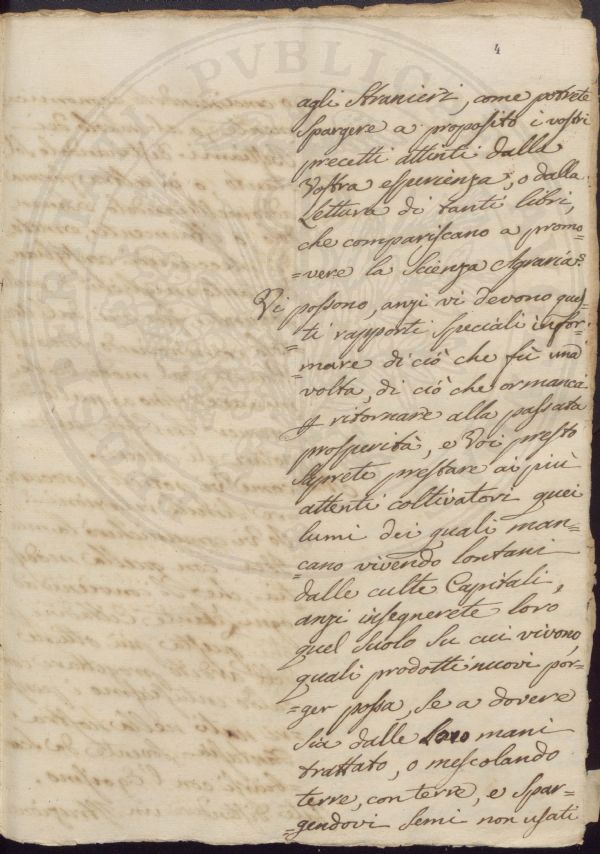 4
agli Stranieri, come potrete
Spargere a proposito i vostri
precetti attinti dalla
Vostra esperienza, o dalla
Lettura di tanti libri,
che compariscano a promo=
=vere la Scienza Agraria.
Vi possono, anzi vi devono ques=
=ti rapporti speciali infor=
=mare di ciò che fù una
volta, di ciò che or manca
p ritornare alla passata
prosperità, e Voi presto
saprete prestare ai più
attenti coltivatori quei
lumi dei quali man=
=cano vivendo lontani
dalle culte Capitali,
anzi insegnerete loro
quel Suolo su cui vivono,
quali prodotti nuovi por=
=ger possa, se a dovere
sia dalle loro mani
trattato, o mescolando
terre, con terre, e spar=
=gendovi semi non usati